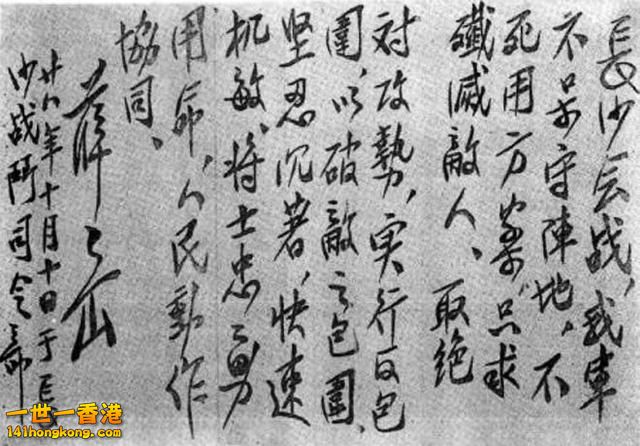 長沙会战,我軍
不呆守陣地,不
死用方案,只求
殲滅敵人、取绝
对攻勢,实行反包
圍,以破敵之包圍、
坚忍沉著,快速
机敏、将士忠勇
用命,人民動作
協同、
薛岳
廿八年十月十日于長
沙战鬥司令部
一世一香港
141hongkong.com